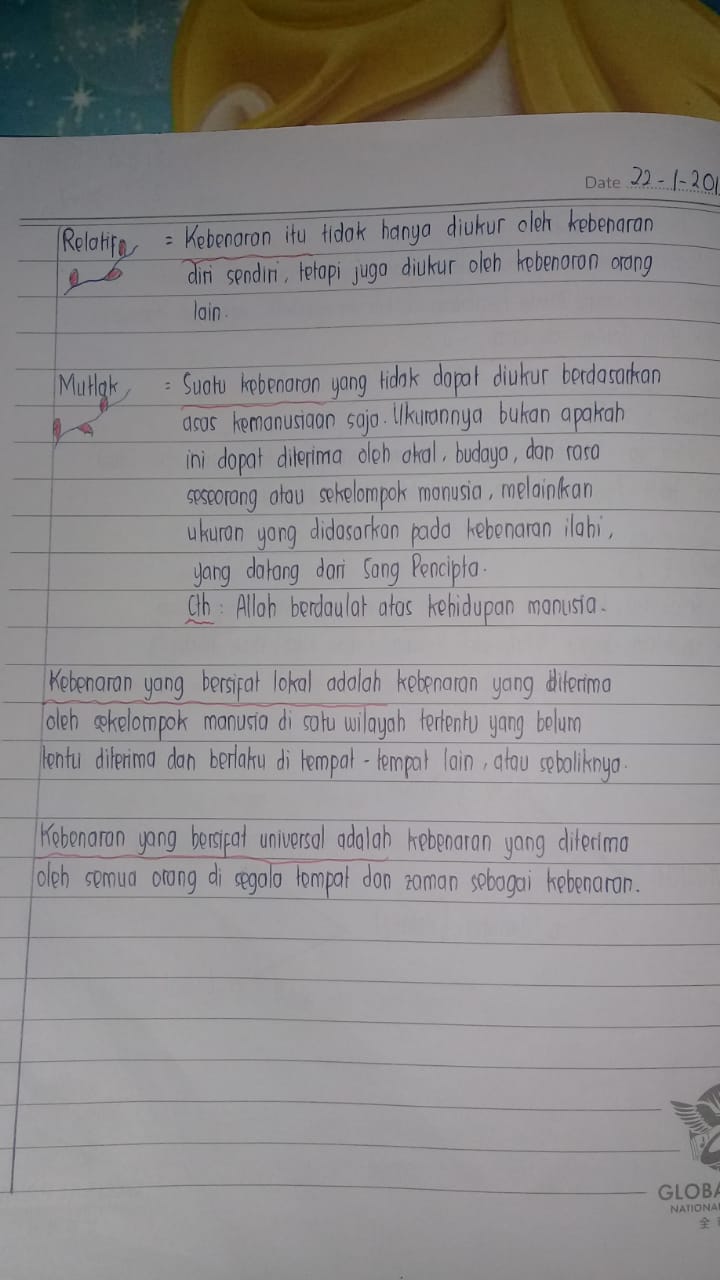 Date 22-1-201
Relatif = Kebenaran itu tidak hanya diukur oleh kebenaran
diri sendiri, tetapi juga diukur oleh kebenaran orang
lain.
Mutlak = Suatu kebenaran yang tidak dapat diukur berdasarkan
asas kemanusiaan saja. Ukurannya bukan apakah
ini dapat diterima oleh akal, budaya, dan rasa
seseorang atau sekelompok manusia, melainkan
ukuran yang didasarkan pada kebenaran ilahi,
yang datang dari Sang Pencipta.
Cth : Allah berdaulat atas kehidupan manusia.
Kebenaran yang bersifat lokal adalah kebenaran yang diterima
oleh sekelompok manusia di satu wilayah tertentu yang belum
tentu diterima dan berlaku di tempat-tempat lain, atau sebaliknya.
Kebenaran yang bersifat universal adalah kebenaran yang diterima
oleh semua orang di segala tempat dan zaman sebagai kebenaran.
GLOBA
NATIONA
全